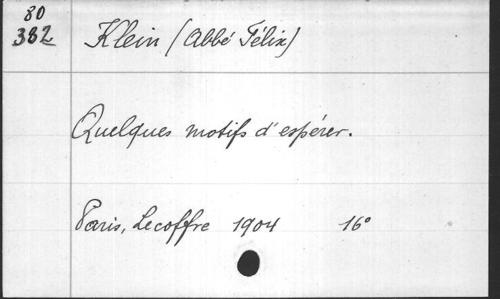 80
382 Klein (Abbé Félix)
Quelques motifs d'espérer.
Paris, Lecoffre 1904 16°